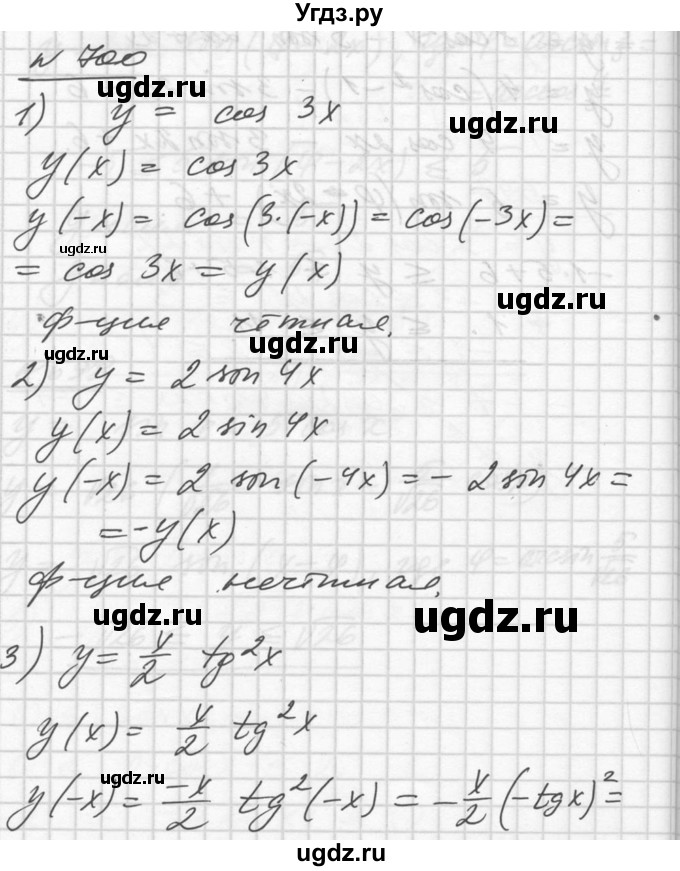 Угдз.ру
№ 700
1) y = cos 3x
y(x) = cos 3x
y(-x) = cos(3·(-x)) = cos(-3x) =
= cos 3x = y(x)
ф-ция чётная.
2) y = 2 sin 4x
y(x) = 2 sin 4x
y(-x) = 2 sin(-4x) = - 2 sin 4x =
= -y(x)
ф-ция нечётная.
3) y = x/2 tg²x
y(x) = x/2 tg²x
y(-x) = -x/2 tg²(-x) = -x/2 (-tgx)² =
ugdz.ru
ugdz.ru
ugdz.ru
ugdz.ru
ugdz.ru
ugdz.ru
ugdz.ru
ugdz.ru
ugdz.ru
ugdz.ru